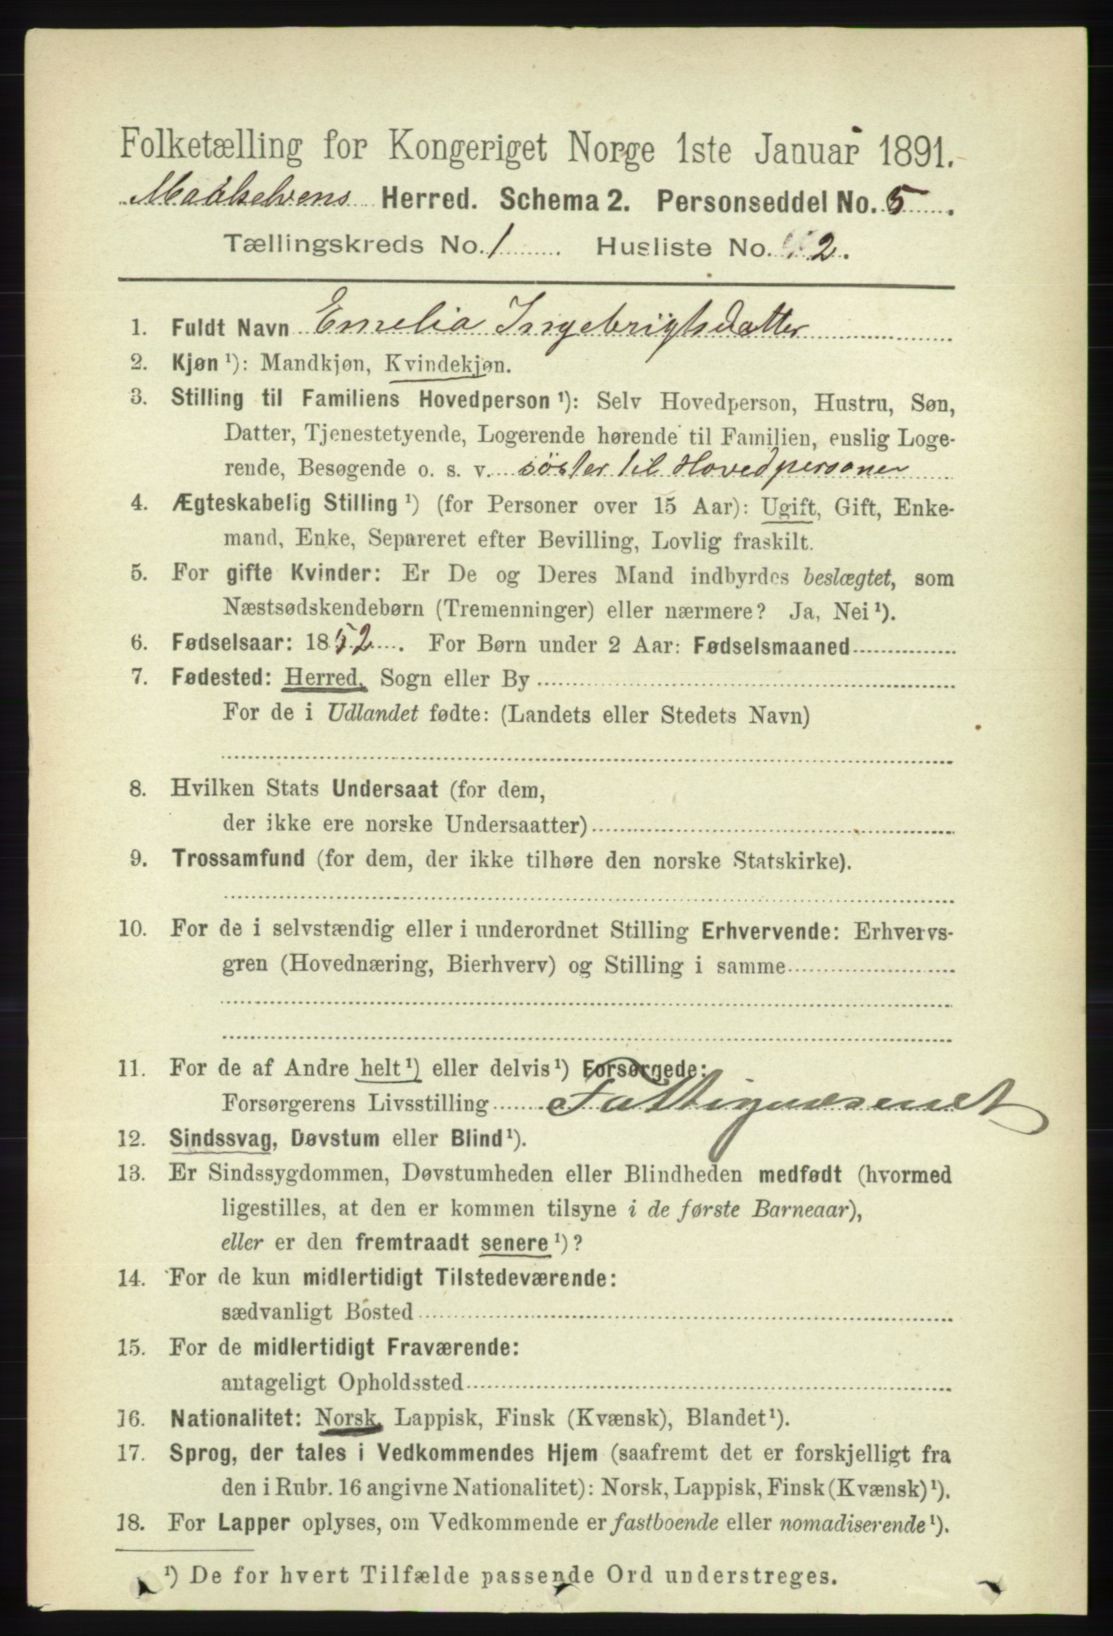 Folketælling for Kongeriget Norge 1ste Januar 1891.
Maalselvens Herred. Schema 2. Personseddel No. 5.
Tællingskreds No. 1 Husliste No. 2.
1. Fuldt Navn Emelia Ingebrigtsdatter
2. Kjøn ¹): Mandkjøn, Kvindekjøn.
3. Stilling til Familiens Hovedperson ¹): Selv Hovedperson, Hustru, Søn,
Datter, Tjenestetyende, Logerende hørende til Familien, enslig Loge-
rende, Besøgende o. s. v. söster til Hovedpersonen
4. Ægteskabelig Stilling ¹) (for Personer over 15 Aar): Ugift, Gift, Enke-
mand, Enke, Separeret efter Bevilling, Lovlig fraskilt.
5. For gifte Kvinder: Er De og Deres Mand indbyrdes beslægtet, som
Næstsødskendebørn (Tremenninger) eller nærmere? Ja, Nei ¹).
6. Fødselsaar: 1852. For Børn under 2 Aar: Fødselsmaaned
7. Fødested: Herred, Sogn eller By
For de i Udlandet fødte: (Landets eller Stedets Navn)
8. Hvilken Stats Undersaat (for dem,
der ikke ere norske Undersaatter)
9. Trossamfund (for dem, der ikke tilhøre den norske Statskirke).
10. For de i selvstændig eller i underordnet Stilling Erhvervende: Erhvervs-
gren (Hovednæring, Bierhverv) og Stilling i samme
11. For de af Andre helt ¹) eller delvis ¹) Forsørgede:
Forsørgerens Livsstilling Fattigvæsenet
12. Sindssvag, Døvstum eller Blind ¹).
13. Er Sindssygdommen, Døvstumheden eller Blindheden medfødt (hvormed
ligestilles, at den er kommen tilsyne i de første Barneaar),
eller er den fremtraadt senere ¹)?
14. For de kun midlertidigt Tilstedeværende:
sædvanligt Bosted
15. For de midlertidigt Fraværende:
antageligt Opholdssted
16. Nationalitet: Norsk, Lappisk, Finsk (Kvænsk), Blandet ¹).
17. Sprog, der tales i Vedkommendes Hjem (saafremt det er forskjelligt fra
den i Rubr. 16 angivne Nationalitet): Norsk, Lappisk, Finsk (Kvænsk) ¹).
18. For Lapper oplyses, om Vedkommende er fastboende eller nomadiserende ¹).
¹) De for hvert Tilfælde passende Ord understreges.